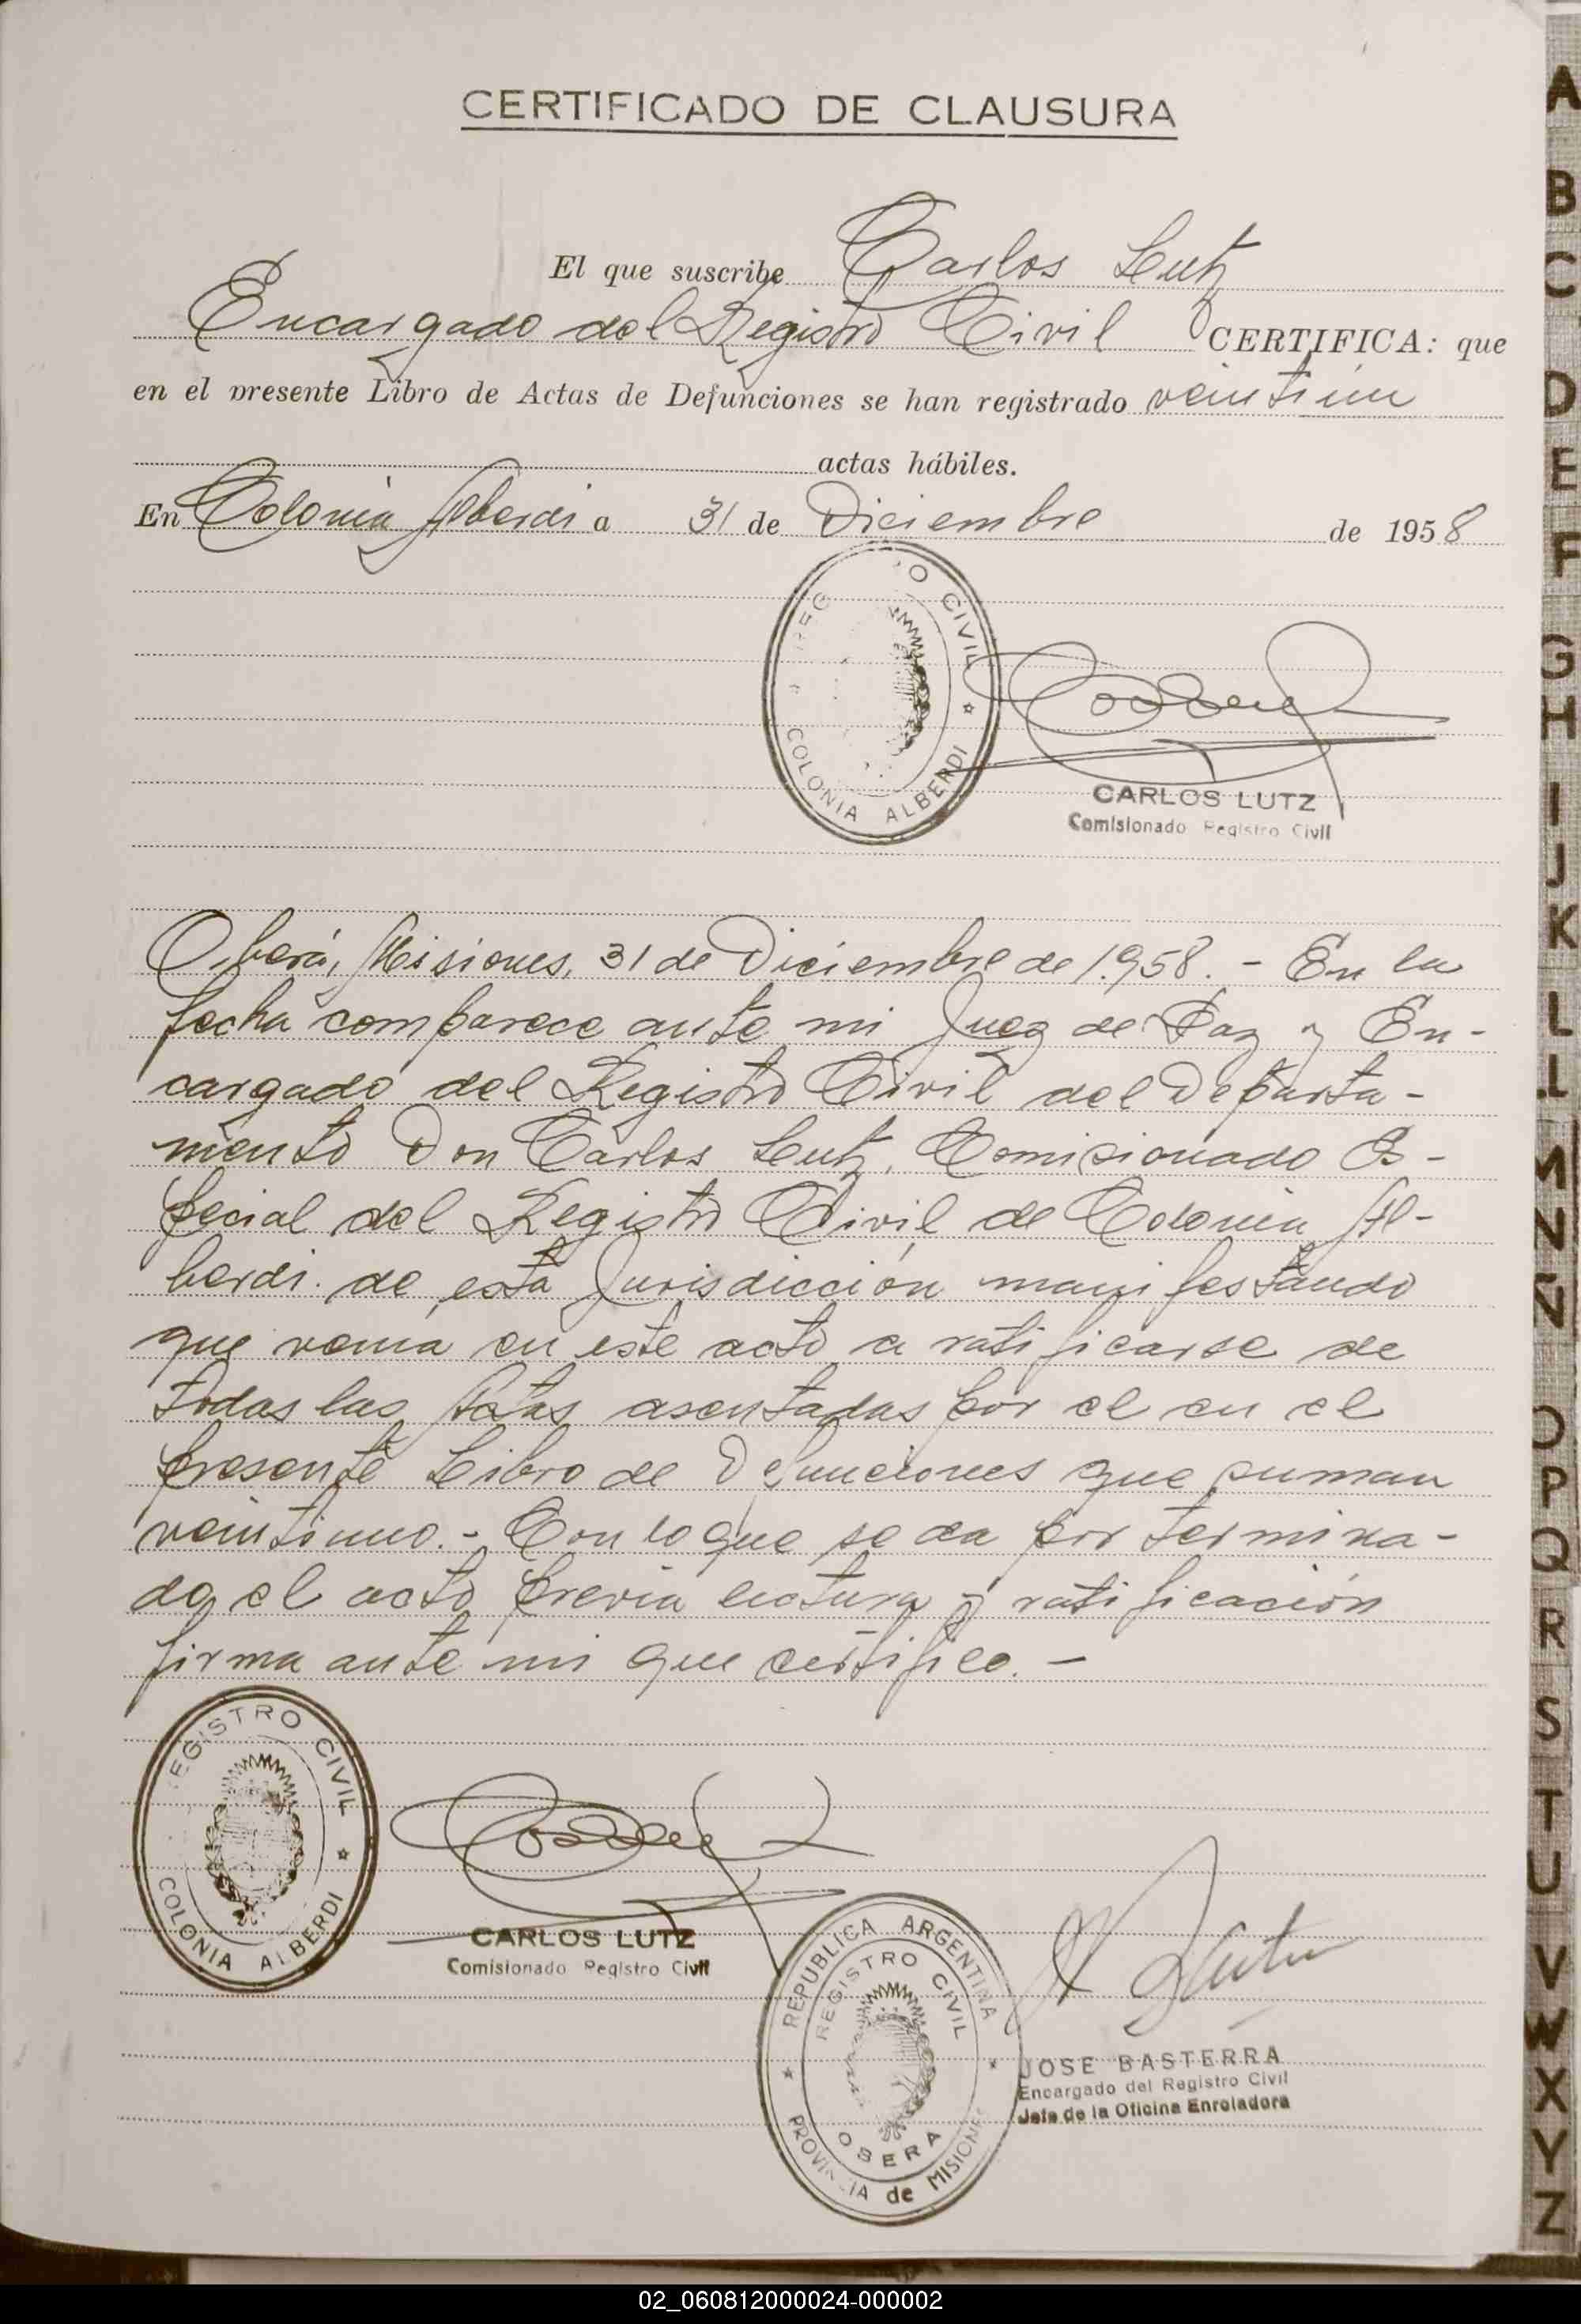 CERTIFICADO DE CLAUSURA
El que suscribe Carlos Lutz
Encargado del Registro Civil CERTIFICA: que
en el presente Libro de Actas de Defunciones se han registrado veintiun
actas hábiles.
En Colonia Alberdi a 31 de Diciembre de 1958
REGISTRO CIVIL
COLONIA ALBERDI
CARLOS LUTZ
Comisionado Registro Civil
Oberá, Misiones, 31 de Diciembre de 1.958. - En la
fecha comparece ante mi Juez de Paz y En-
cargado del Registro Civil del Departa-
mento Don Carlos Lutz, Comisionado Es-
pecial del Registro Civil de Colonia Al-
berdi de esta Jurisdicción manifestando
que venia en este acto a ratificarse de
todas las Actas asentadas por el en el
presente Libro de Defunciones que suman
veintiuno. - Con lo que se da por termina-
do el acto previa lectura y ratificación
firma ante mi que certifico. -
REGISTRO CIVIL
COLONIA ALBERDI
CARLOS LUTZ
Comisionado Registro Civil
REPUBLICA ARGENTINA
REGISTRO CIVIL
OBERA
PROVINCIA de MISIONES
JOSE BASTERRA
Encargado del Registro Civil
Jefe de la Oficina Enroladora
A
B
C
D
E
F
G
H
I
J
K
L
LL
M
N
Ñ
O
P
Q
R
S
T
U
V
W
X
Y
Z
02_060812000024-000002